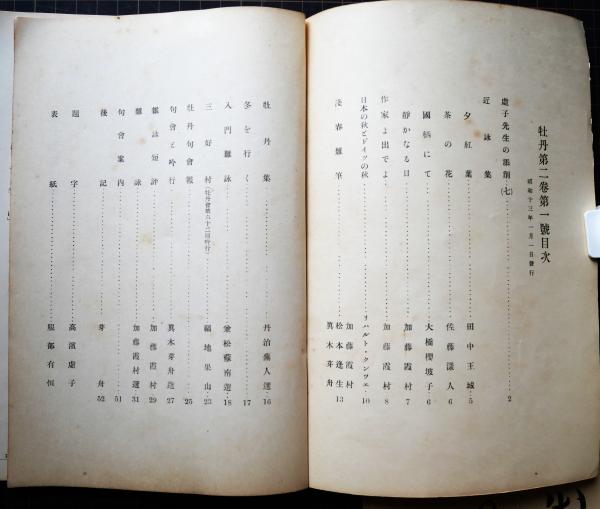 牡丹第二卷第一號目次
昭和十三年一月一日發行
虚子先生の添削(七)……2
近詠集
夕紅葉……田中王城…5
茶の花……佐藤漾人 6
國栖にて……大橋櫻坡子…6
靜かなる日……加藤霞村 7
作家よ出でよ……加藤霞村 8
日本の秋とドイツの秋……リハルト・クンツェ…10
淺春隨筆……加藤霞村 松本逢生 眞木芽舟 13
牡丹集……丹治蕪人選 16
冬を行く……17
入門雜詠……兼松蘇南選…18
三好村(牡丹會第五十二回吟行)……福地果山…23
牡丹句會報……25
句會と吟行……眞木芽舟選 27
雜詠短評……加藤霞村 29
雜詠……加藤霞村選…31
句會案内……51
後記……芽舟 52
題字……高濱虚子
表紙……服部有恒